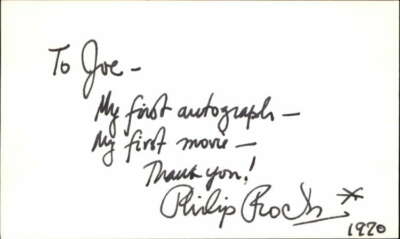 To Joe -
My first autograph -
My first movie -
Thank you!
Philip Proctor *
1970